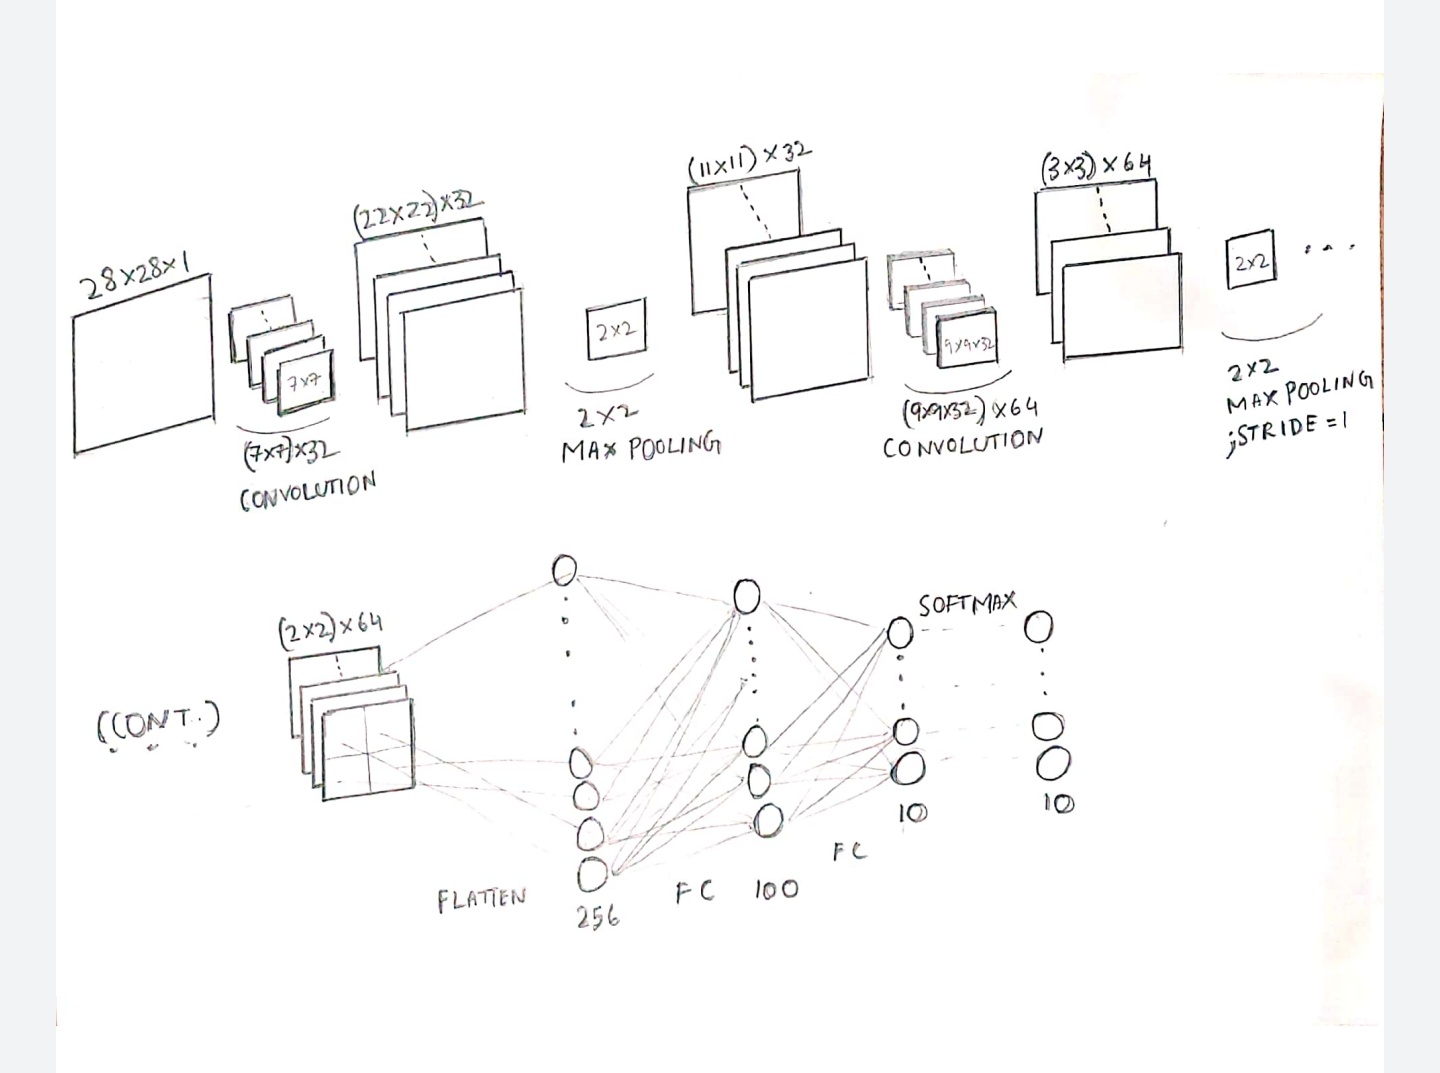 28×28×1
7×7
(7×7)×32
CONVOLUTION
(22×22)×32
2×2
2×2
MAX POOLING
(11×11)×32
9×9×32
(9×9×32)×64
CONVOLUTION
(3×3)×64
2×2
....
2×2
MAX POOLING
;STRIDE=1
(CONT.)
...
(2×2)×64
FLATTEN
256
FC
100
FC
10
SOFTMAX
10